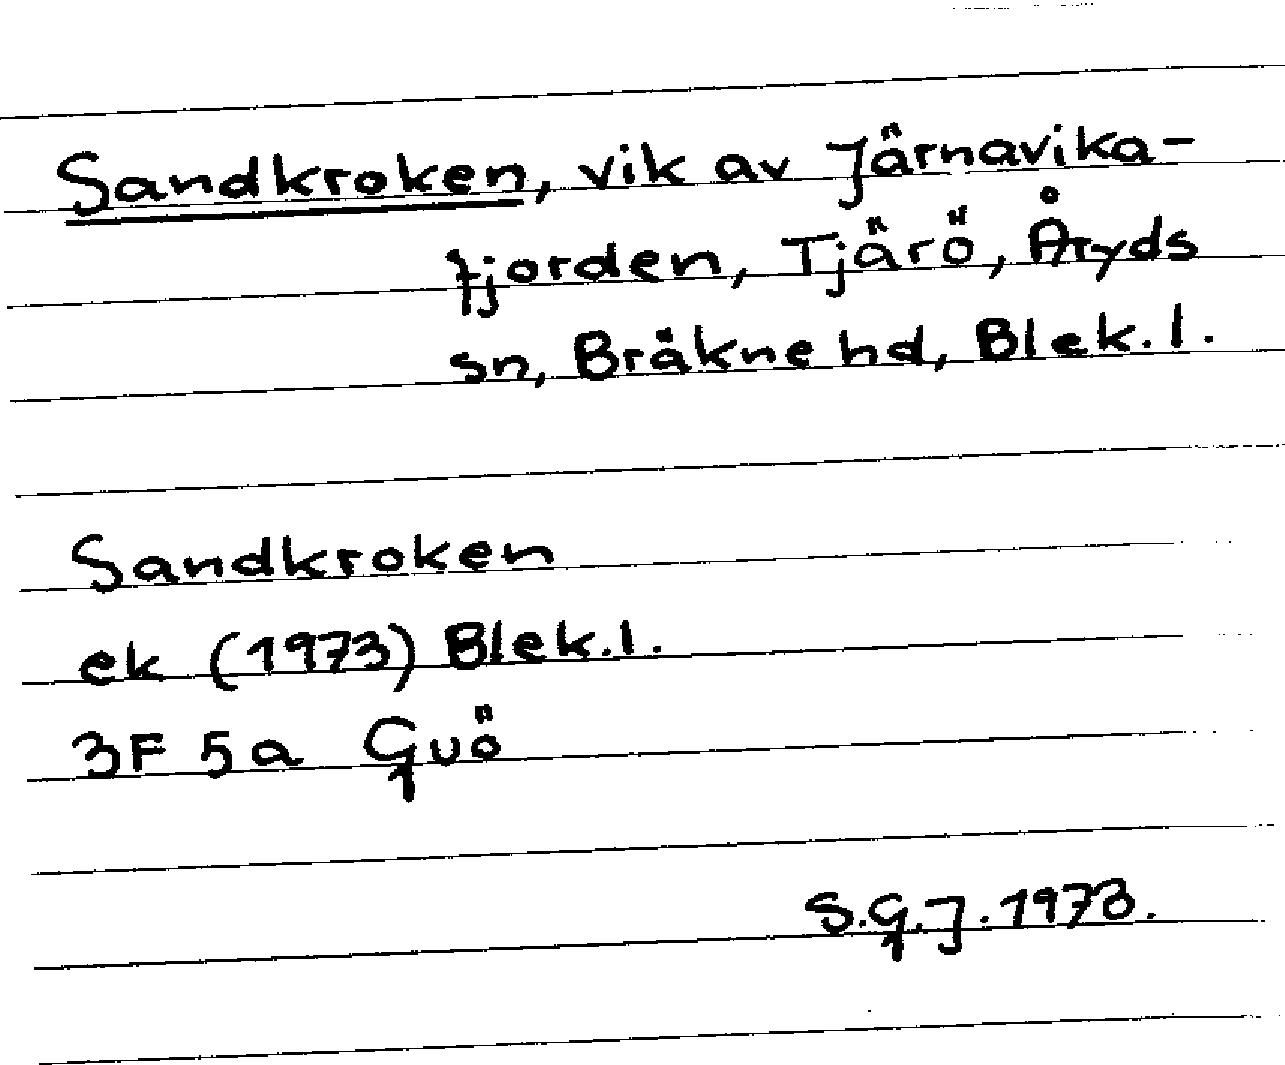 Sandkroken, vik av Järnavika-
fjorden, Tjärö, Åryds
sn, Bräkne hd, Blek. l.
Sandkroken
ek (1973) Blek. l.
3F 5a Guö
S.G.J. 1973.